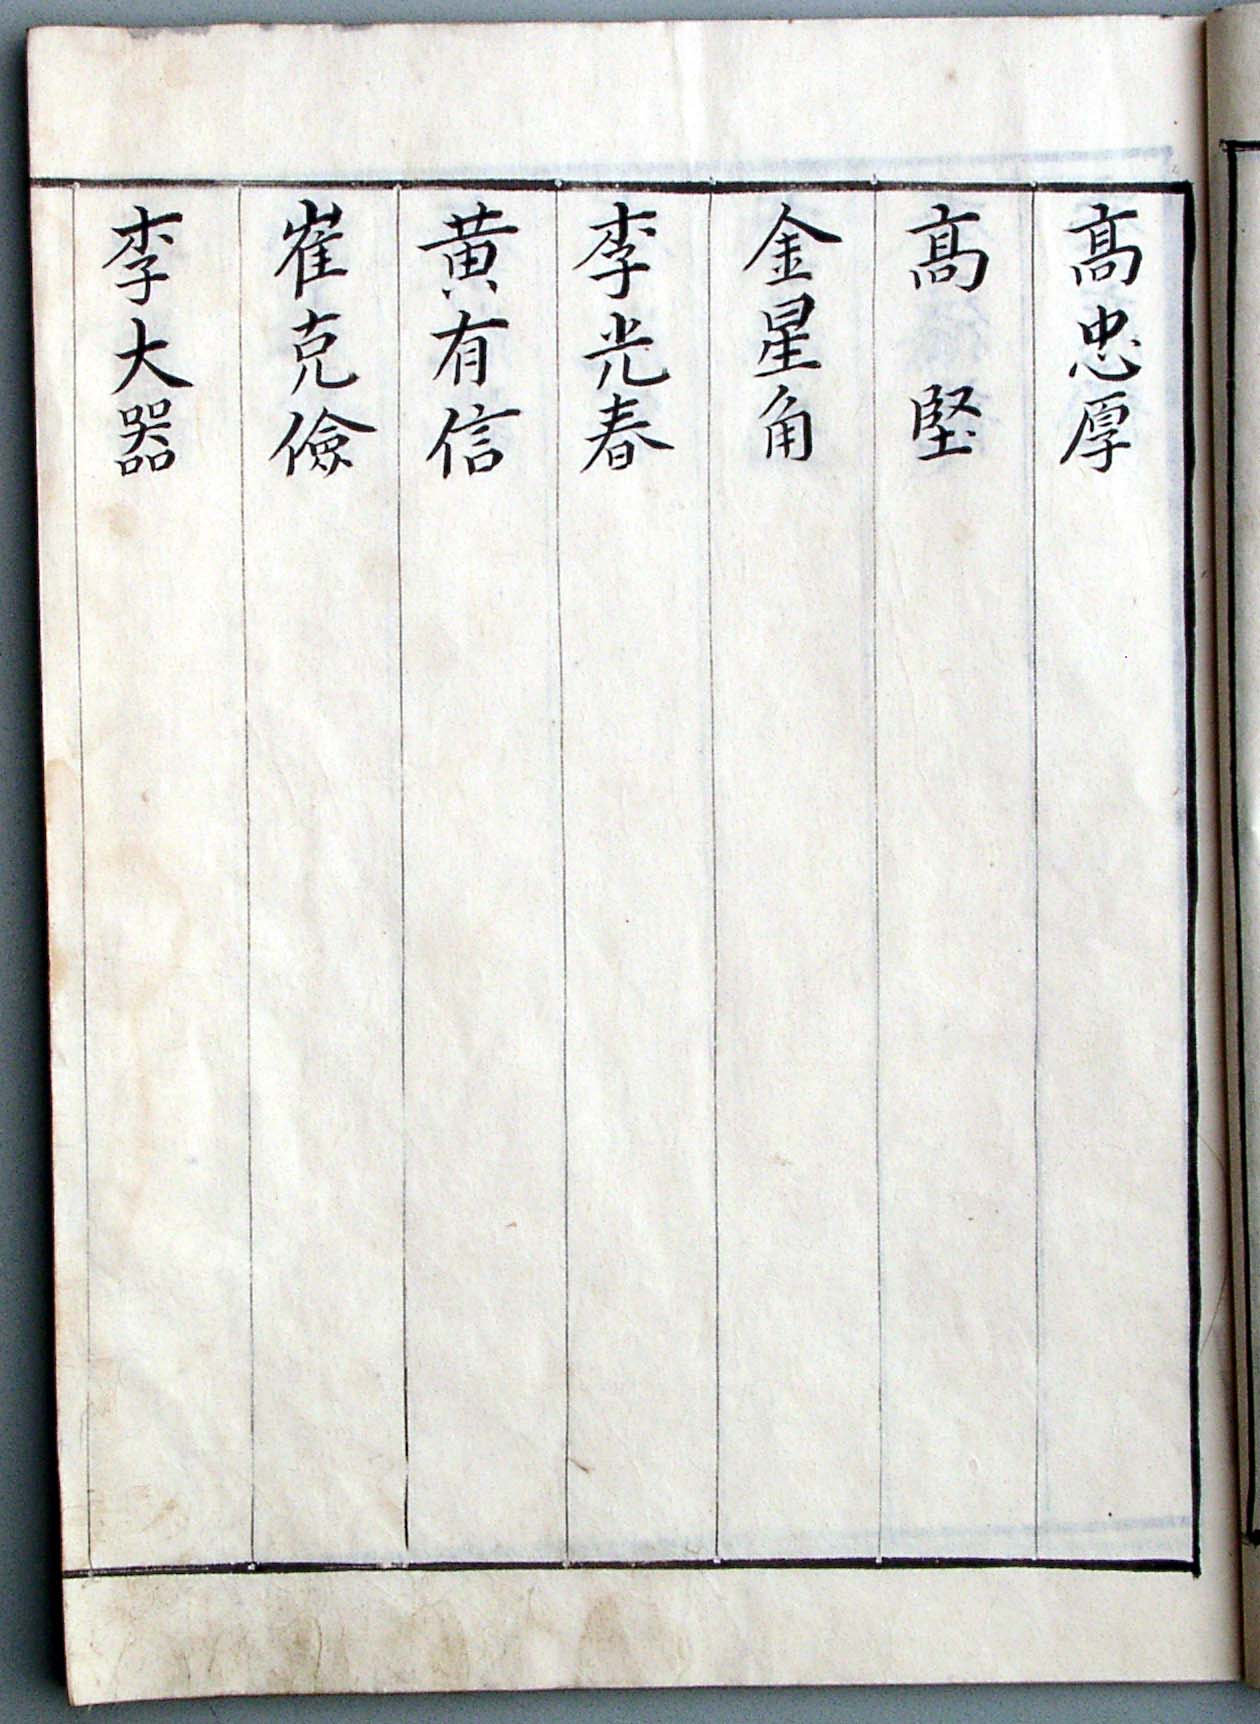 髙忠厚
髙　堅
金星角
李光春
黄有信
崔克儉
李大器